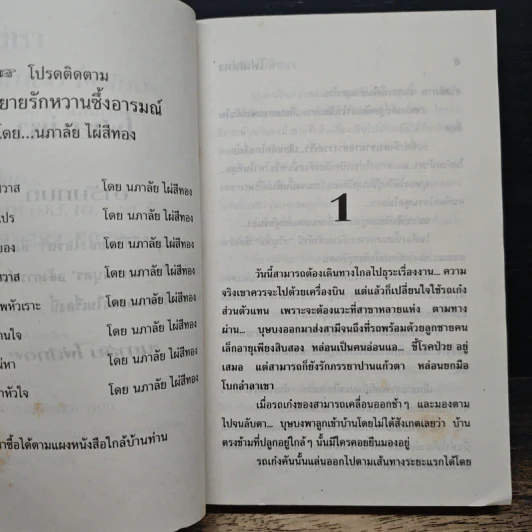 โปรดติดตาม
ยายรักหวานซึ้งอารมณ์
โดย...นภาลัย ไผ่สีทอง
วาส โดย นภาลัย ไผ่สีทอง
ไปร โดย นภาลัย ไผ่สีทอง
ของ โดย นภาลัย ไผ่สีทอง
วาส โดย นภาลัย ไผ่สีทอง
พหัวเราะ โดย นภาลัย ไผ่สีทอง
านใจ โดย นภาลัย ไผ่สีทอง
น่หา โดย นภาลัย ไผ่สีทอง
าหัวใจ โดย นภาลัย ไผ่สีทอง
าซื้อได้ตามแผงหนังสือใกล้บ้านท่าน
1
วันนี้สามารถต้องเดินทางไกลไปธุระเรื่องงาน... ความ
จริงเขาควรจะไปด้วยเครื่องบิน แต่แล้วก็เปลี่ยนใจใช้รถเก๋ง
ส่วนตัวแทน เพราะจะต้องแวะที่สาขาหลายแห่ง ตามทาง
ผ่าน... บุษบงออกมาส่งสามีจนถึงที่รถพร้อมด้วยลูกชายคน
เล็กอายุเพียงสิบสอง หล่อนเป็นคนอ่อนแอ... ขี้โรคป่วย อยู่
เสมอ แต่สามารถก็ยังรักภรรยาปานแก้วตา หล่อนยกมือ
โบกอำลาเขา
เมื่อรถเก๋งของสามารถเคลื่อนออกช้าๆ และมองตาม
ไปจนลับตา... บุษบงพาลูกเข้าบ้านโดยไม่ได้สังเกตเลยว่า บ้าน
ตรงข้ามที่ปลูกอยู่ใกล้ๆ นั้นมีใครคอยยืนมองอยู่
รถเก๋งคันนั้นแล่นออกไปตามเส้นทางระยะแรกได้โดย